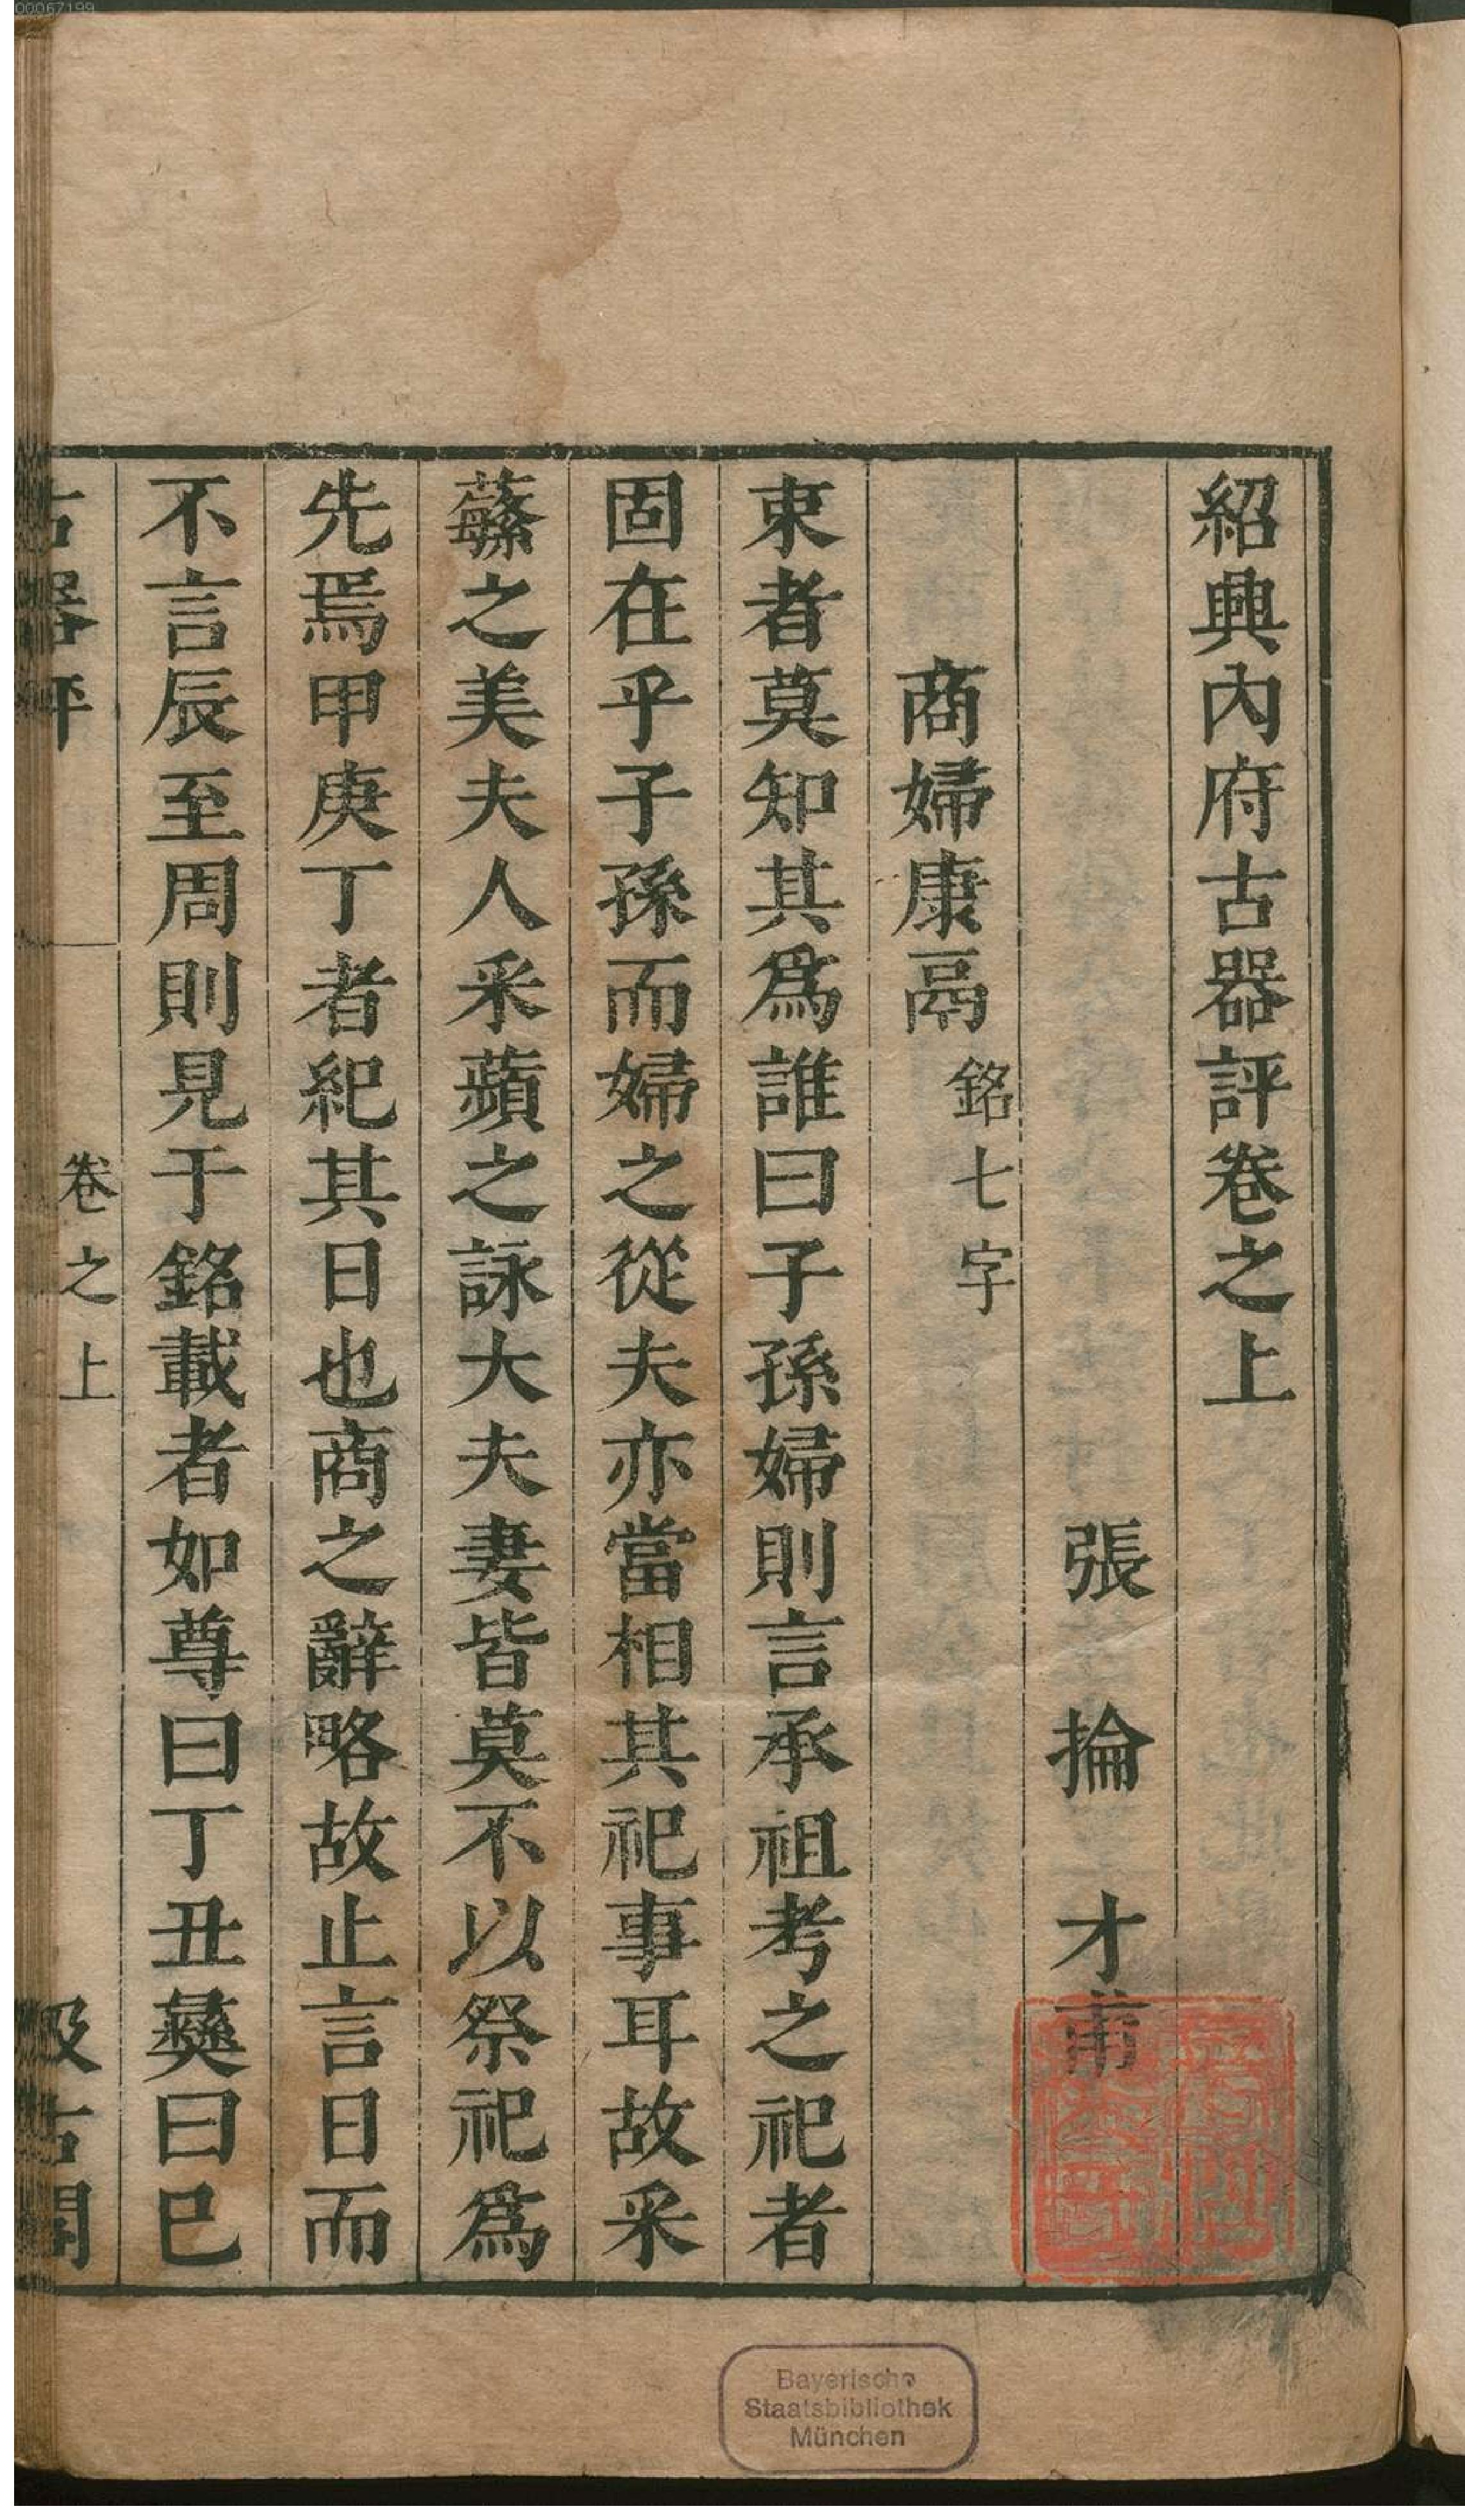 紹興內府古器評卷之上
張掄才甫
商婦康鬲銘七字
束者莫知其爲誰曰子孫婦則言承祖考之祀者
固在乎子孫而婦之從夫亦當相其祀事耳故采
蘩之美夫人采蘋之詠大夫妻皆莫不以祭祀爲
先焉甲庚丁者紀其日也商之辭略故止言日而
不言辰至周則見于銘載者如尊曰丁丑彝曰巳
古器評
卷之上
汲古閣
Bayerische
Staatsbibliothek
München
00067199